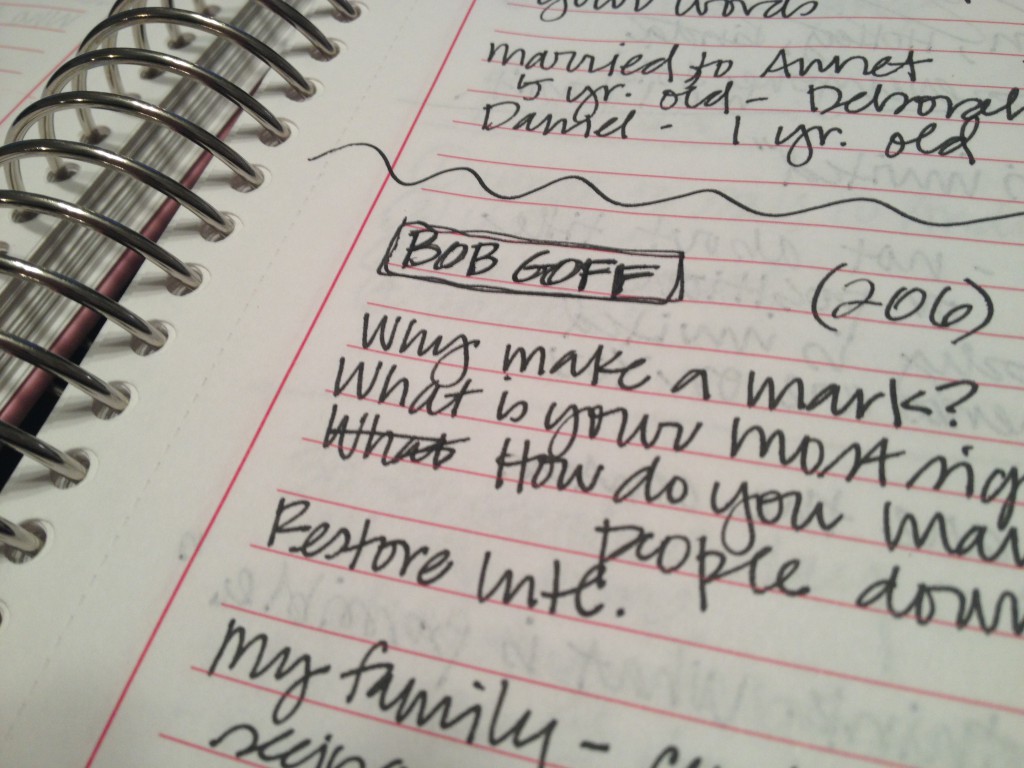 your words
married to Annet
5 yr. old - Deborah
Daniel - 1 yr. old
BOB GOFF (206)
Why make a mark?
What is your most sig
What How do you mar
people down
Restore Intl.
My family -